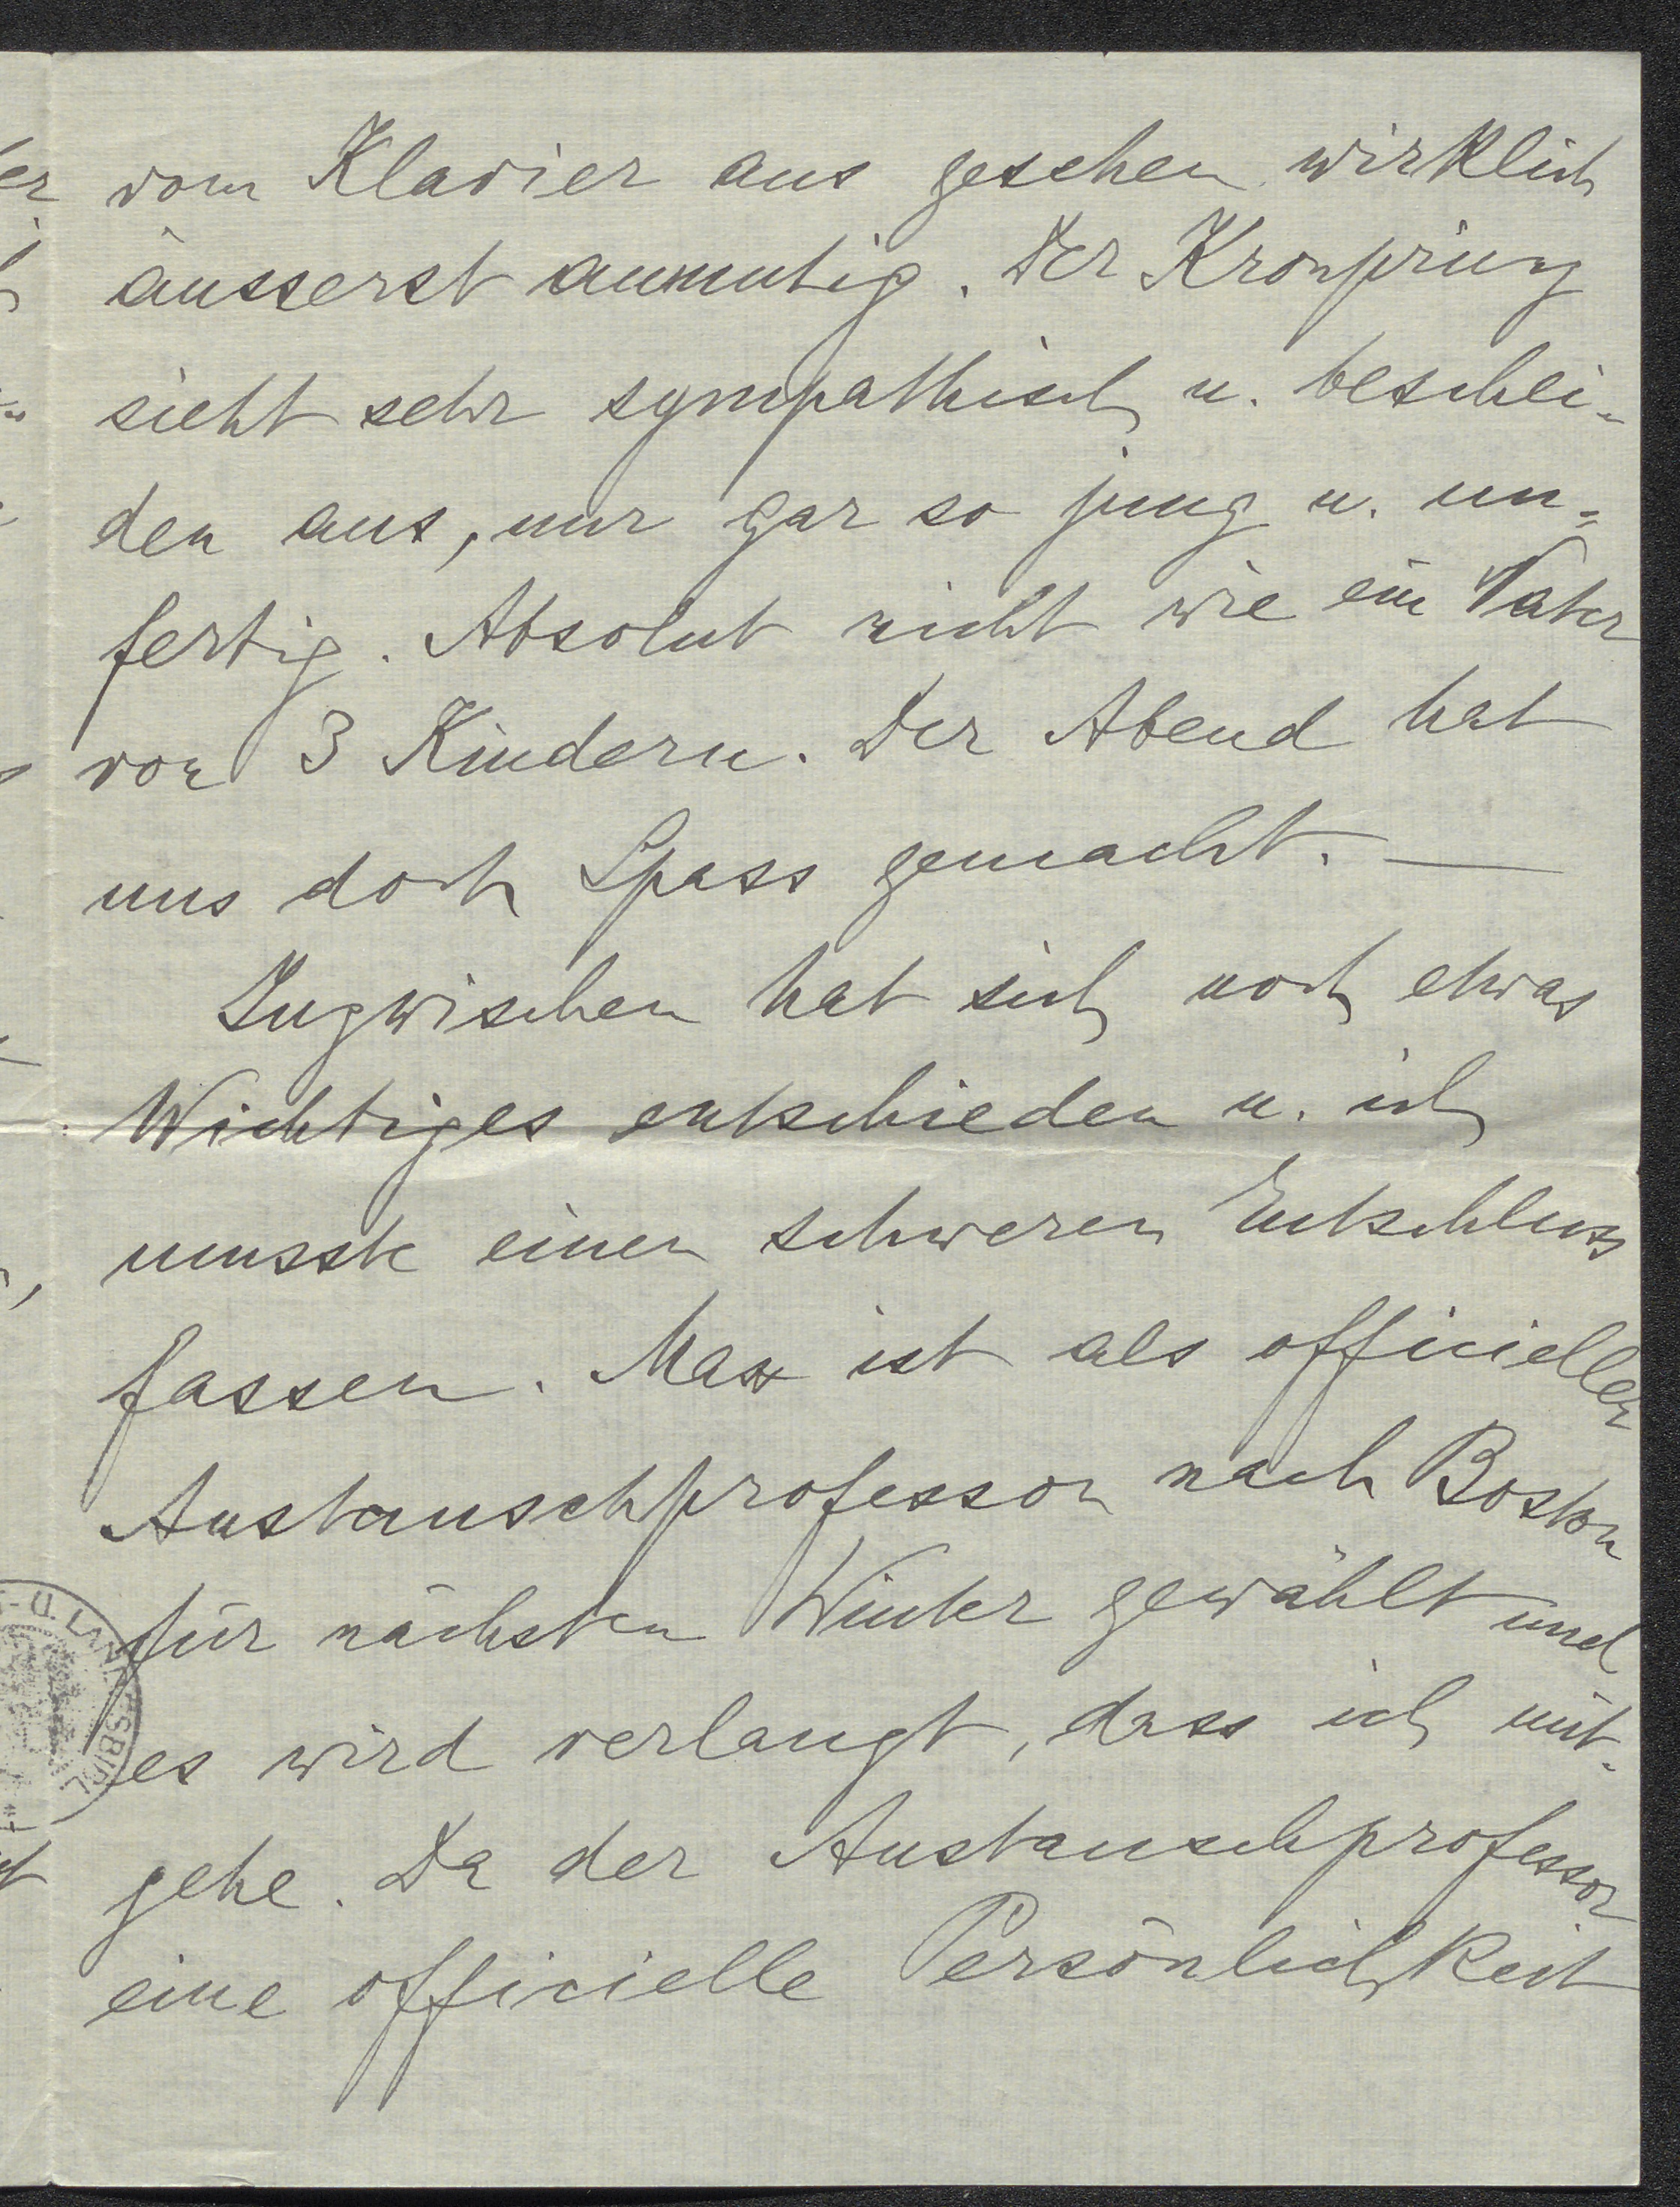 vom Klavier aus gesehen wirklich
äusserst anmutig. Der Kronprinz
sieht sehr sympathisch u. beschei-
den aus, nur gar so jung u. un-
fertig. Absolut nicht wie ein Vater
von 3 Kindern. Der Abend hat
uns doch Spass gemacht. —
Inzwischen hat sich noch etwas
Wichtiges entschieden u. ich
musste einen schweren Entschluss
fassen. Max ist als officieller
Austauschprofessor nach Boston
für nächsten Winter gewählt und
es wird verlangt, dass ich mit-
gehe. Da der Austauschprofessor
eine officielle Persönlichkeit